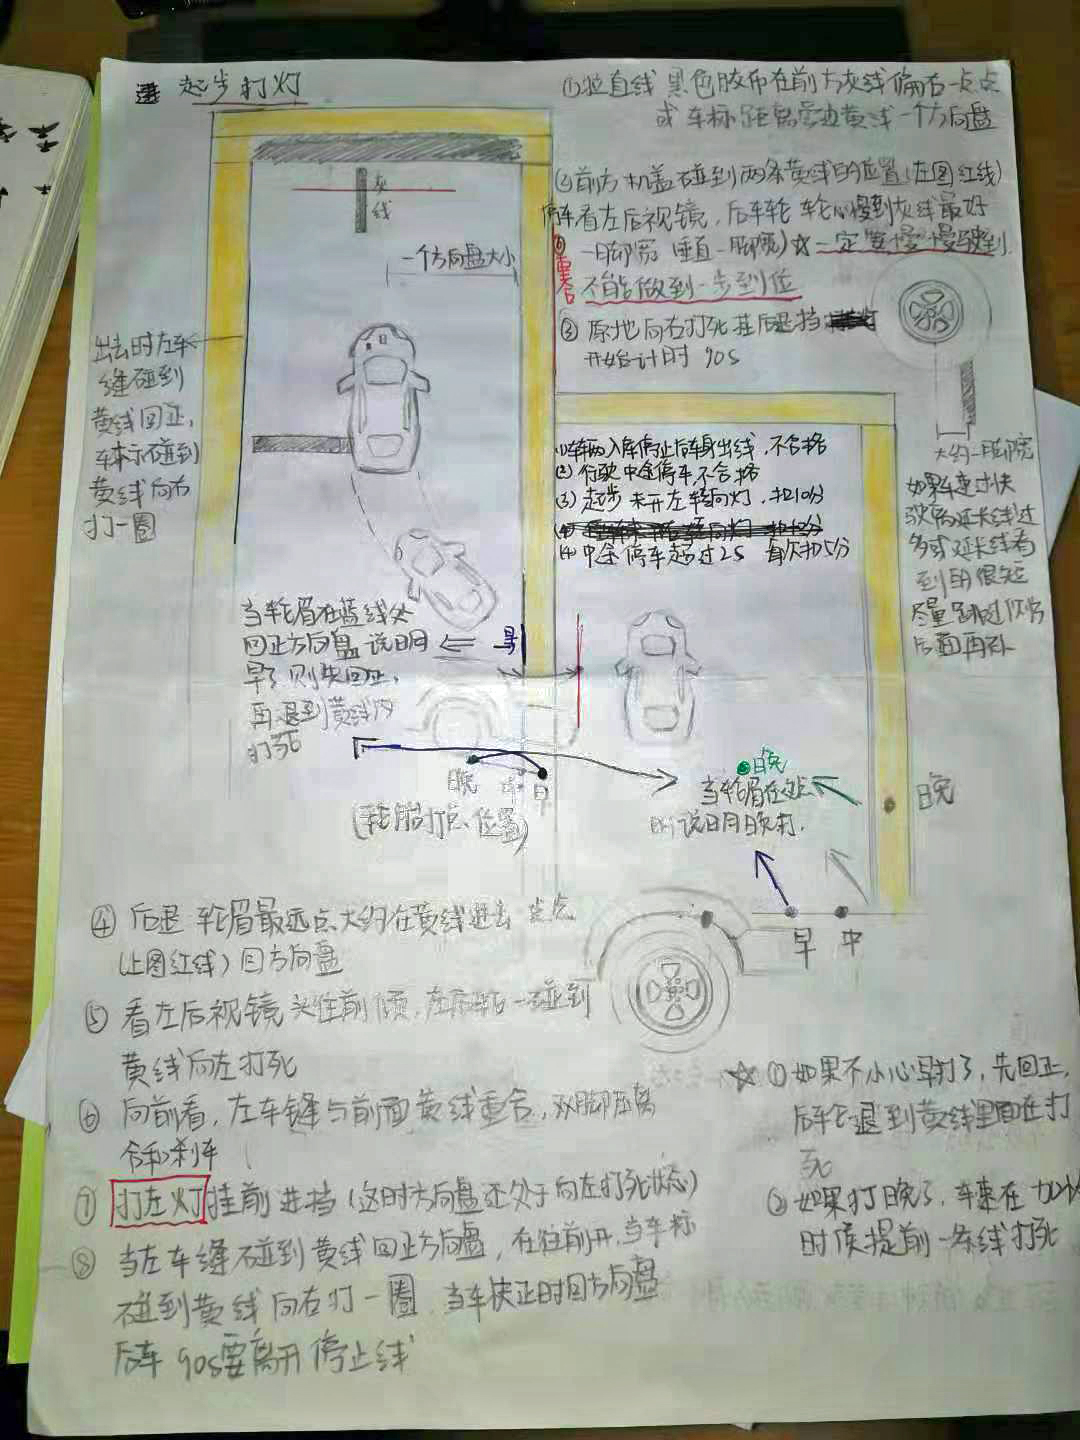 起步打灯
①拉直线 黑色胶布在前方灰线偏右一点点
或车标距离旁边黄线一个方向盘
②前方机盖碰到两条黄线的位置(左图红线)
停车,看左后视镜,后车轮 轮心慢到灰线最好
一脚宽(垂直一脚宽)☆一定要慢慢驶到
不能做到一步到位
重合
③原地向右打死挂后退挡
开始计时 90s
灰线
一个方向盘大小
出去时左车
缝碰到
黄线回正,
车标碰到
黄线向右
打一圈
大约一脚宽
如果车速过快
驶离延长线过
多或延长线看
到的很短
尽量
后面再补
(1)车辆入库停止后车身出线,不合格
(2)行驶中途停车,不合格
(3)起步未开左转向灯,扣10分
(4)中途停车超过2s 每次扣5分
当轮眉在蓝线处
回正方向盘说明
早了则先回正,
再退到黄线内
打死
早
晚
中
早
(轮眉打点位置)
晚
当轮眉在处
时说明晚打.
晚
早
中
④后退 轮眉最远点大约在黄线进去一点点
(上图红线)回方向盘
⑤看左后视镜头往前倾,左后轮一碰到
黄线向左打死
⑥向前看,左车缝与前面黄线重合,双脚踩离
合和刹车
⑦打左灯挂前进挡(这时方向盘还处于向左打死状态)
⑧当左车缝碰到黄线回正方向盘,在往前开,当车标
碰到黄线向右打一圈 当车快正时回方向盘
后车 90s要离开停止线
☆①如果不小心早打了,先回正,
后车轮退到黄线里面在打
死
②如果打晚了,车速在
时候提前一条线打死